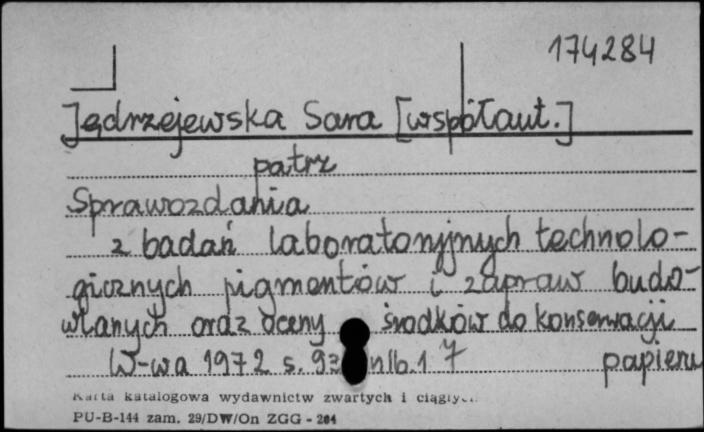 174284
Jędrzejewska Sara [współaut.]
patrz
Sprawozdania
z badań laboratoryjnych technolo-
gicznych pigmentów i zapraw budo-
wlanych oraz oceny środków do konserwacji
W-wa 1972 s. nlb. 1 7 papieru
Karta katalogowa wydawnictw zwartych i ciągłych
PU-B-144 zam. 29/DW/On ZGG - 204